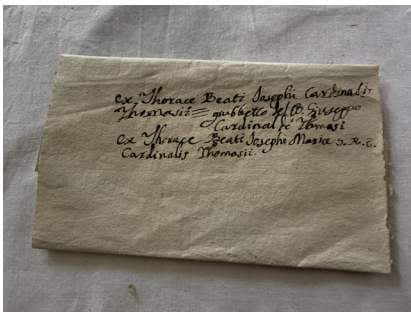 ex Thorace Beati Josephi Cardinalis
Thomasii = giubbetto del B. Giuseppe
Cardinal de Tomasi
ex Thorace Beati Josephi Mariæ S. R. E.
Cardinalis Thomasii.